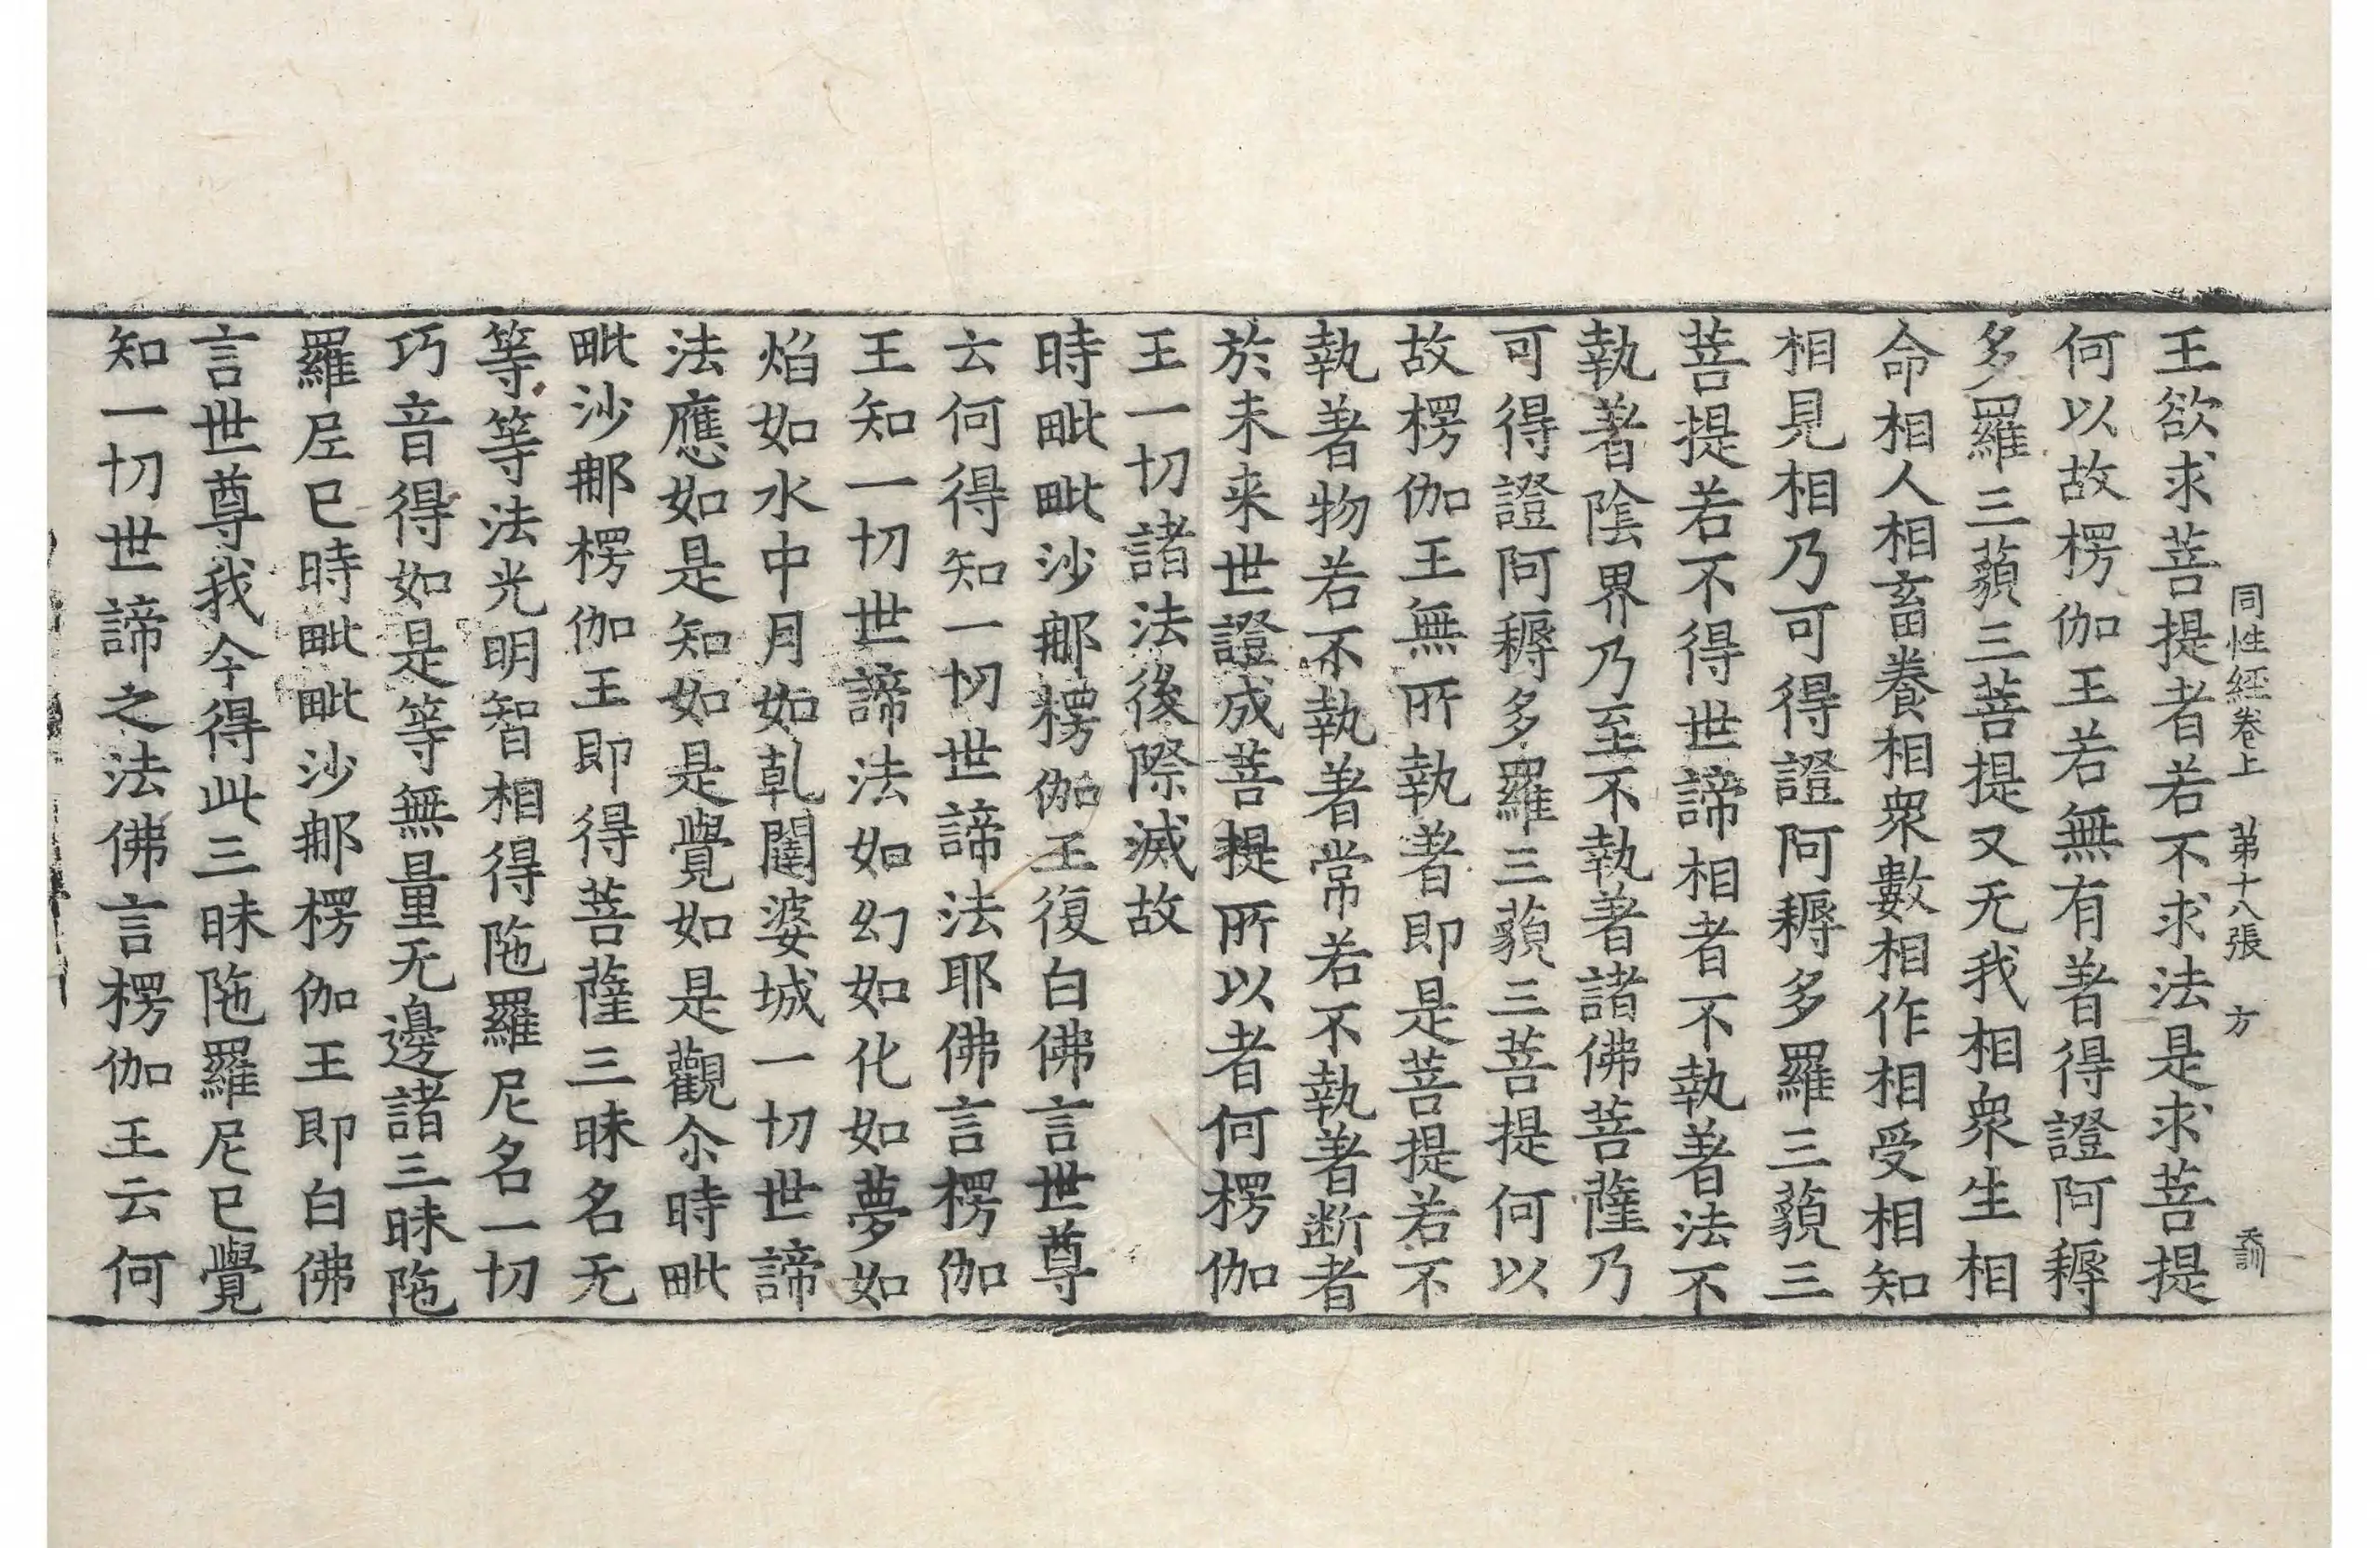 同性經卷上 第十八張 方 𠃔訓
王欲求菩提者若不求法是求菩提
何以故楞伽王若無有著得證阿耨
多羅三藐三菩提又无我相衆生相
命相人相畜養相衆數相作相受相知
相見相乃可得證阿耨多羅三藐三
菩提若不得世諦相者不執著法不
執著陰界乃至不執著諸佛菩薩乃
可得證阿耨多羅三藐三菩提何以
故楞伽王無所執著即是菩提若不
執著物若不執著常若不執著断者
於未来世證成菩提所以者何楞伽
王一切諸法後際滅故
時毗毗沙郍楞伽王復白佛言世尊
云何得知一切世諦法耶佛言楞伽
王知一切世諦法如幻如化如夢如
焰如水中月如乹闥婆城一切世諦
法應如是知如是覺如是觀尒時毗
毗沙郍楞伽王即得菩薩三昧名无
等等等法光明智相得陁羅尼名一切
巧音得如是等無量无邊諸三昧陁
羅尼已時毗毗沙郍楞伽王即白佛
言世尊我今得此三昧陁羅尼已覺
知一切世諦之法佛言楞伽王云何